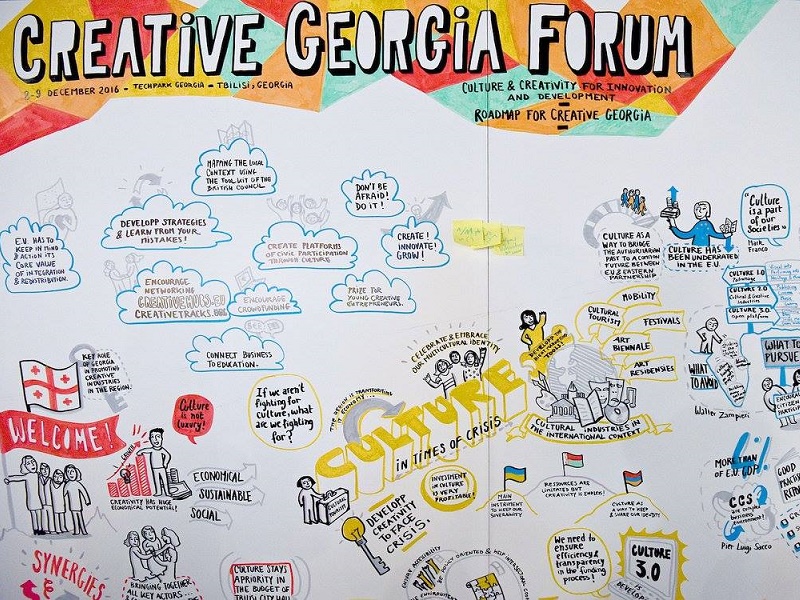 CREATIVE GEORGIA FORUM
8-9 DECEMBER 2016 - TECHPARK GEORGIA - TBILISI, GEORGIA
CULTURE & CREATIVITY FOR INNOVATION
AND DEVELOPMENT
ROADMAP FOR CREATIVE GEORGIA
MAPPING THE LOCAL
CONTEXT USING
THE TOOLKIT OF THE
BRITISH COUNCIL
DON'T BE
AFRAID!
DO IT!
E.U. HAS TO
KEEP IN MIND
& ACTION ITS
CORE VALUE
OF INTEGRATION
& REDISTRIBUTION.
DEVELOPP STRATEGIES
& LEARN FROM YOUR
MISTAKES!
CREATE PLATFORMS
OF CIVIC PARTICIPATION
THROUGH CULTURE
CREATE!
INNOVATE!
GROW!
ENCOURAGE
NETWORKING
CREATIVEHUBS.EU
CREATIVETRACKS.ORG
ENCOURAGE
CROWDFUNDING
PRIZE FOR
YOUNG CREATIVE
ENTREPRENEURS.
CONNECT BUSINESS
TO EDUCATION.
CULTURE AS A
WAY TO BRIDGE
THE AUTHORITARIAN
PAST TO A COMMON
FUTURE BETWEEN
EU & EASTERN
PARTNERSHIP
CULTURE HAS
BEEN UNDERRATED
IN THE E.U.
"Culture
is a part
of our
Societies"
Mark
Franco
CULTURE 1.0
Patronage
CULTURE 2.0
Cultural & Creative
Industries
CULTURE 3.0
Open platform
WHAT TO
PURSUE
WHAT
TO AVOID
Walter Zampieri
MOBILITY
CULTURAL
TOURISM
FESTIVALS
ART
BIENNALE
ART
RESIDENSIES
CULTURAL INDUSTRIES IN
THE INTERNATIONAL CONTEXT
CELEBRATE & EMBRACE
OUR MULTICULTURAL IDENTITY
KEY ROLE
OF GEORGIA
IN PROMOTING
CREATIVE
INDUSTRIES
IN THE REGION.
WELCOME!
Culture
is not
luxury!
If we aren't
fighting for
culture, what
are we fighting
for?
CULTURE
IN TIMES OF CRISIS
CREATIVITY HAS HUGE
ECONOMICAL POTENTIAL!
ECONOMICAL
SUSTAINABLE
SOCIAL
CULTURAL
TOURISM
INVESTMENT
IN CULTURE
IS VERY
PROFITABLE!
DEVELOPP
CREATIVITY
TO FACE
CRISIS.
MAIN
INSTRUMENT
TO KEEP OUR
SOVERAINITY
RESSOURCES ARE
LIMITATED BUT
CREATIVITY IS ENDLESS!
CULTURE AS
A WAY TO KEEP
& SHARE OUR IDENTITY
We need to
ensure
efficiency &
transparency
in the funding
process!
CULTURE
3.0
IS
MORE THAN
4%
OF E.U. GDP
CCS
are complex
business
environment!
Pier Luigi Sacco
GOOD
SYNERGIES
BRINGING TOGETHER
ALL KEY ACTORS...
CULTURE STAYS
A PRIORITY IN
THE BUDGET OF